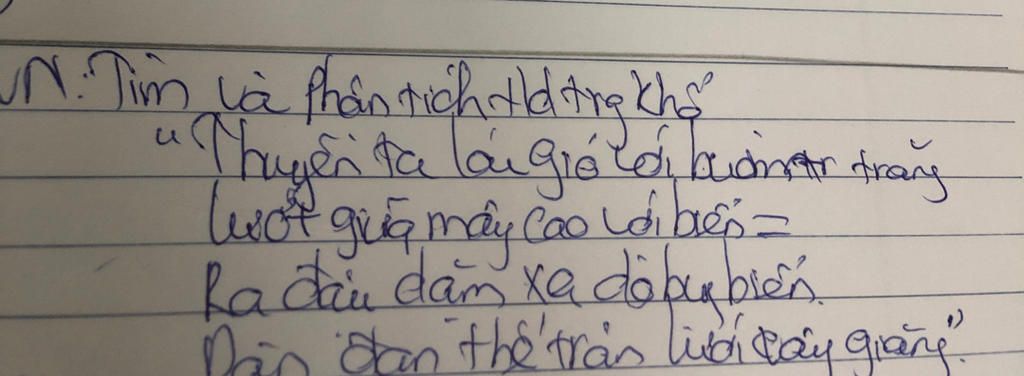 VN: Tìm và phân tích td trg khổ
"Thuyền ta lái gió với buồm trăng
Lướt giữa mây cao với biển =
Ra đậu dặm xa dò bụg biển.
Dàn đan thế trận lưới vây giăng"